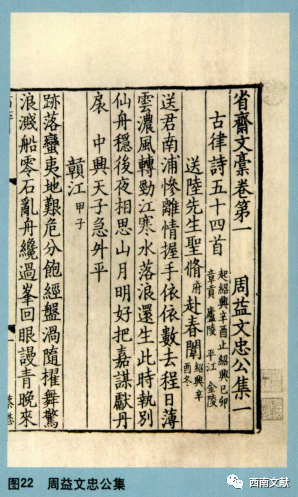 省齋文藁卷第一 周益文忠公集一
古律詩五十四首 起紹興辛酉止紹興己卯
章貢 廬陵 平江 金陵
送陸先生聖脩府赴春闈 紹興辛酉冬
送君南浦慘離情握手依依數去程日薄
雲濃風轉勁江寒水落浪還生此時執別
仙舟穩後夜相思山月明好把嘉謀獻丹
扆 中興天子急外平
贛江 甲子
跡落蠻夷地艱危分飽經盤渦隨櫂舞驚
浪濺船零石亂舟纔過峯回眼謾青晚來
图22 周益文忠公集
西南文献